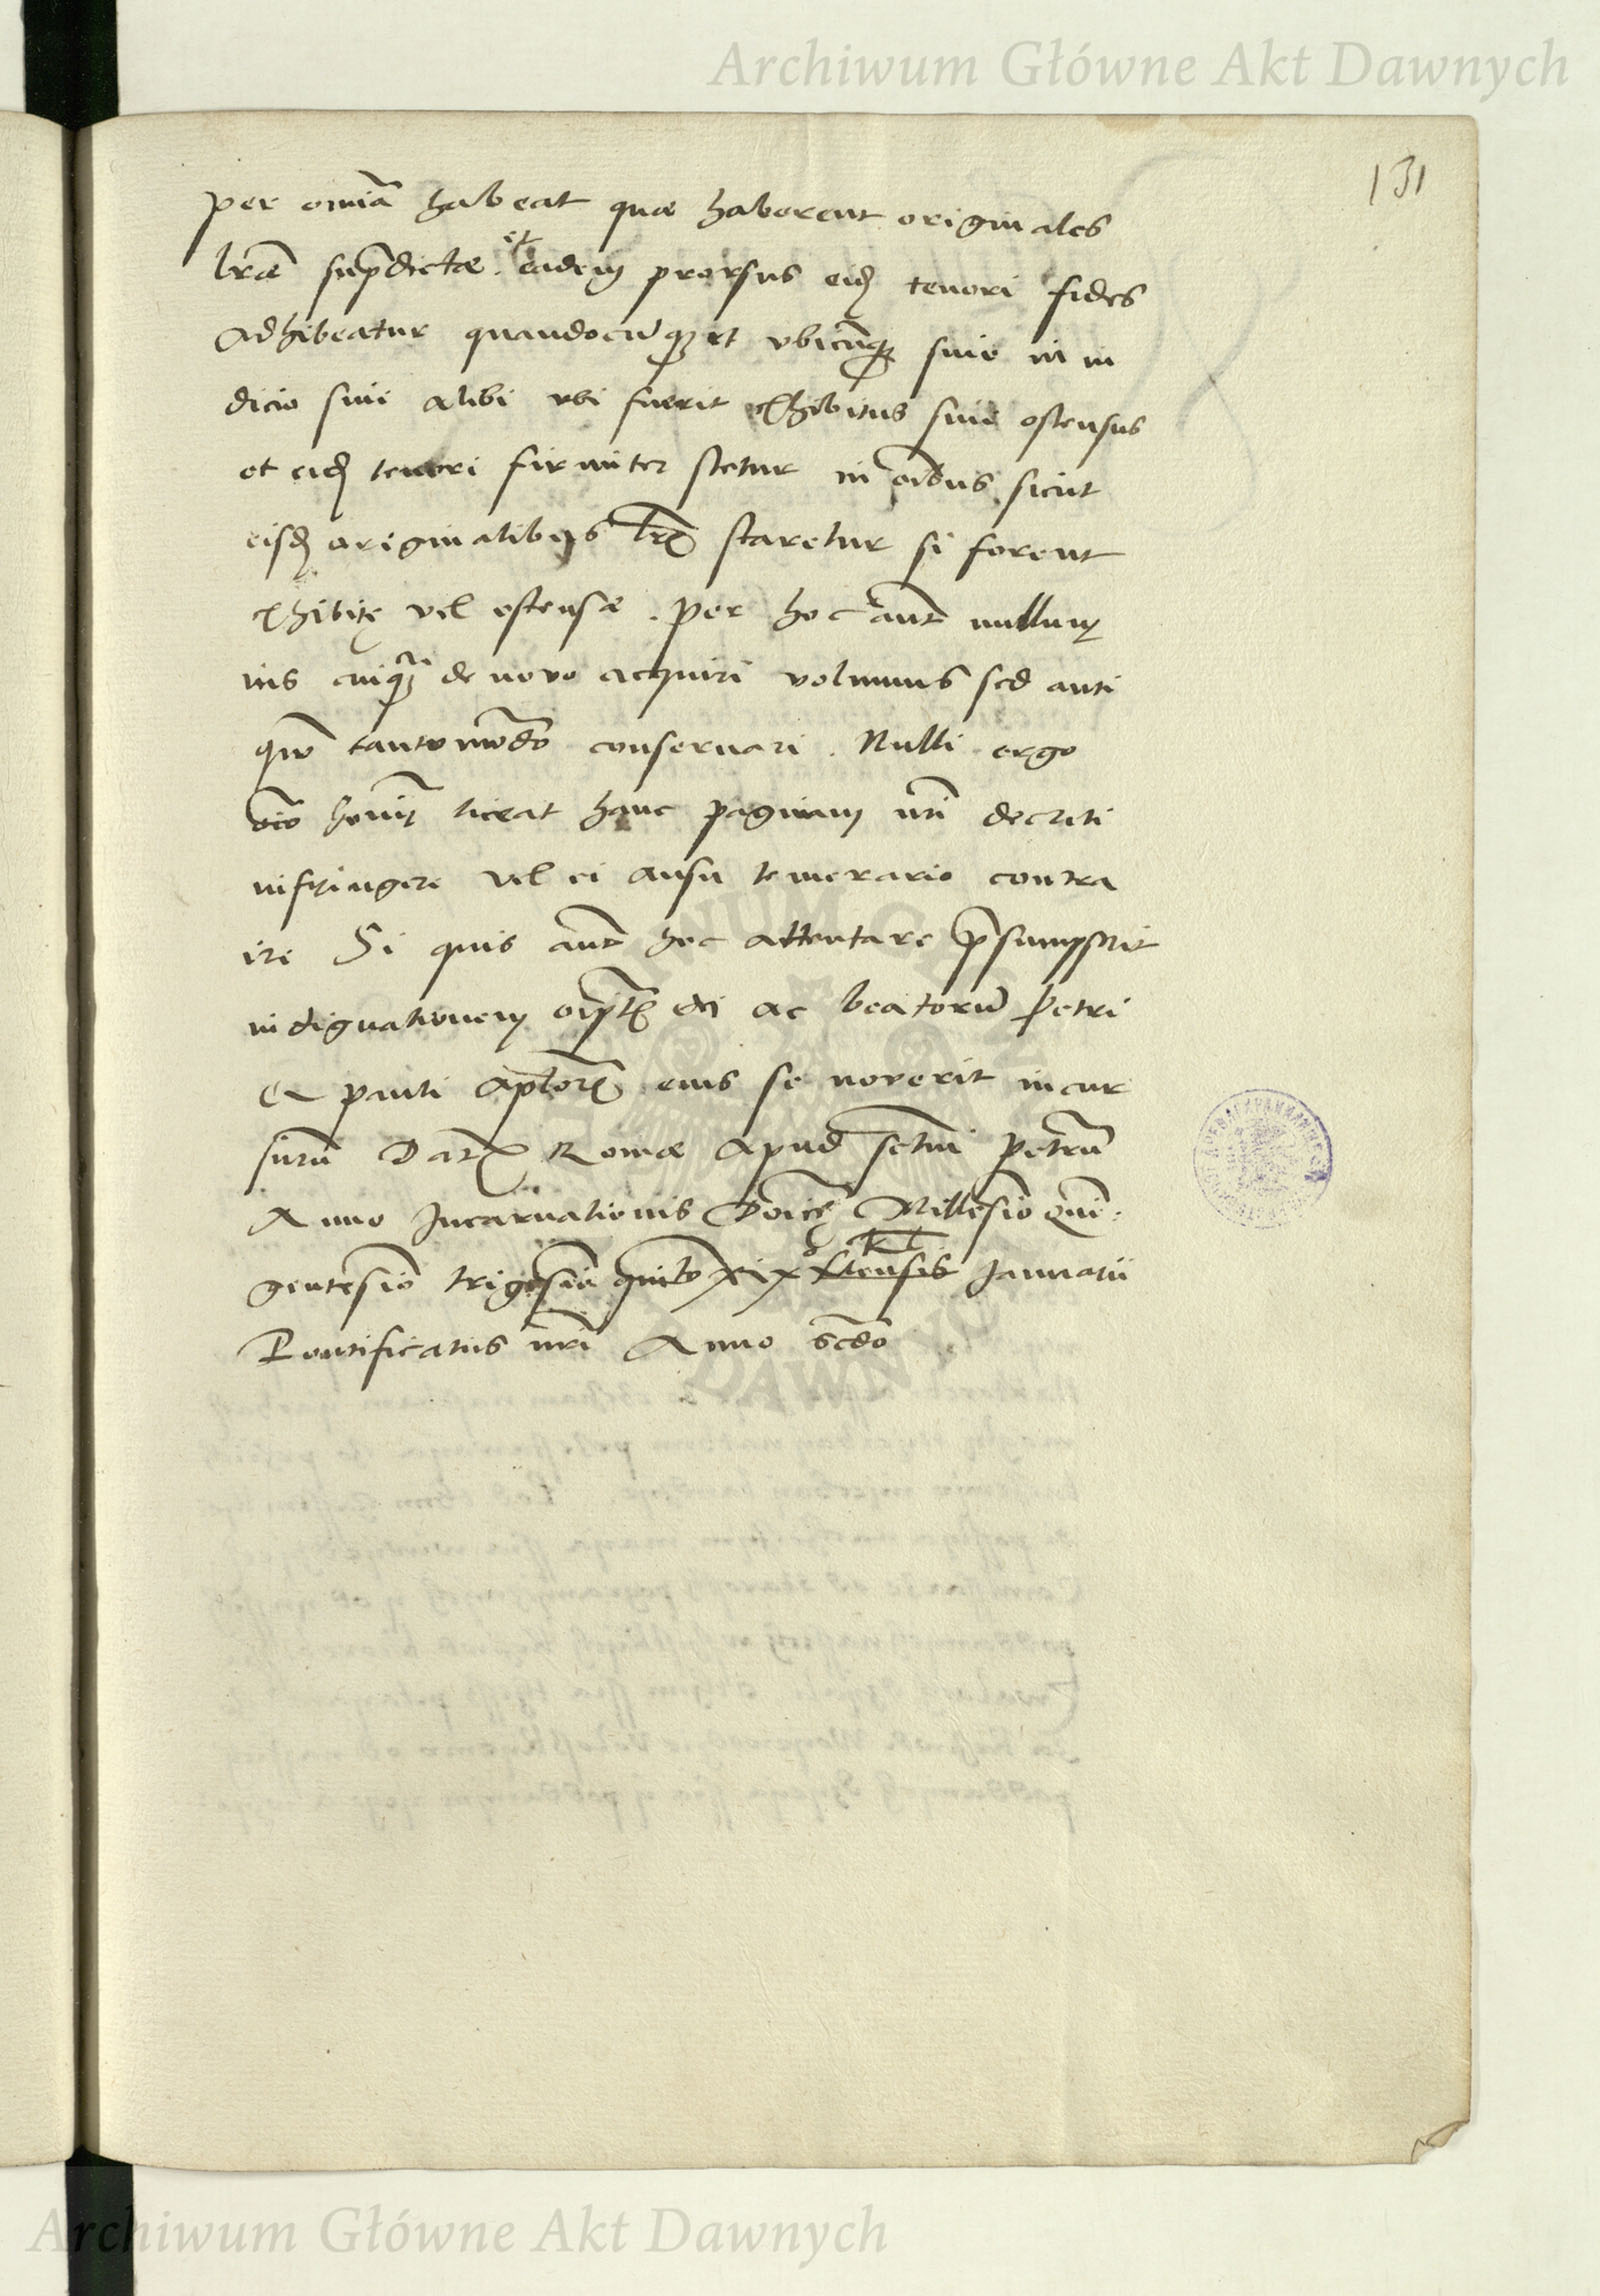 Archiwum Główne Akt Dawnych
131
per omīa habeat quæ haberent originales
lr̃æ supradictæ. et eadem prorsus eid tenori fides
adhibeatur quandocūq et vbicūq siue in iu
dicio siue alibi vbi fuerit exhibitus siue ostensus
et eid tenori firmiter stetur in oībus sicut
eisd originalibus lr̃is staretur si forent
exhibitę vel ostensæ. per hoc aut nullum
ius cuiq de nouo acquiri volumus sed anti
quū tantūmodo conseruari. Nulli ergo
oīo homī liceat hanc paginam nr̃i decreti
infringere vel ei ausu temerario contra
ire Si quis aut hoc attentare p̄sumpserit
indignationem oīpotis dei ac beatorū Petri
et pauli aplorū eius se nouerit incur
surū Datæ Romæ apud sctum petrū
Anno Incarnationis Dōīcę Millesīo quin:
gentesīo trigesīo quinto xix o Kl Januarii
Pontificatus nr̃i Anno scdo
Archiwum Główne Akt Dawnych